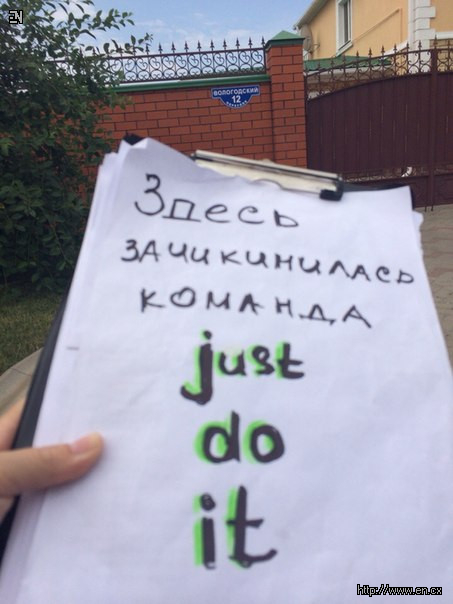 EN
ВОЛОГОДСКИЙ
12
Здесь
зачикинилась
команда
just
do
it
http://www.en.cx